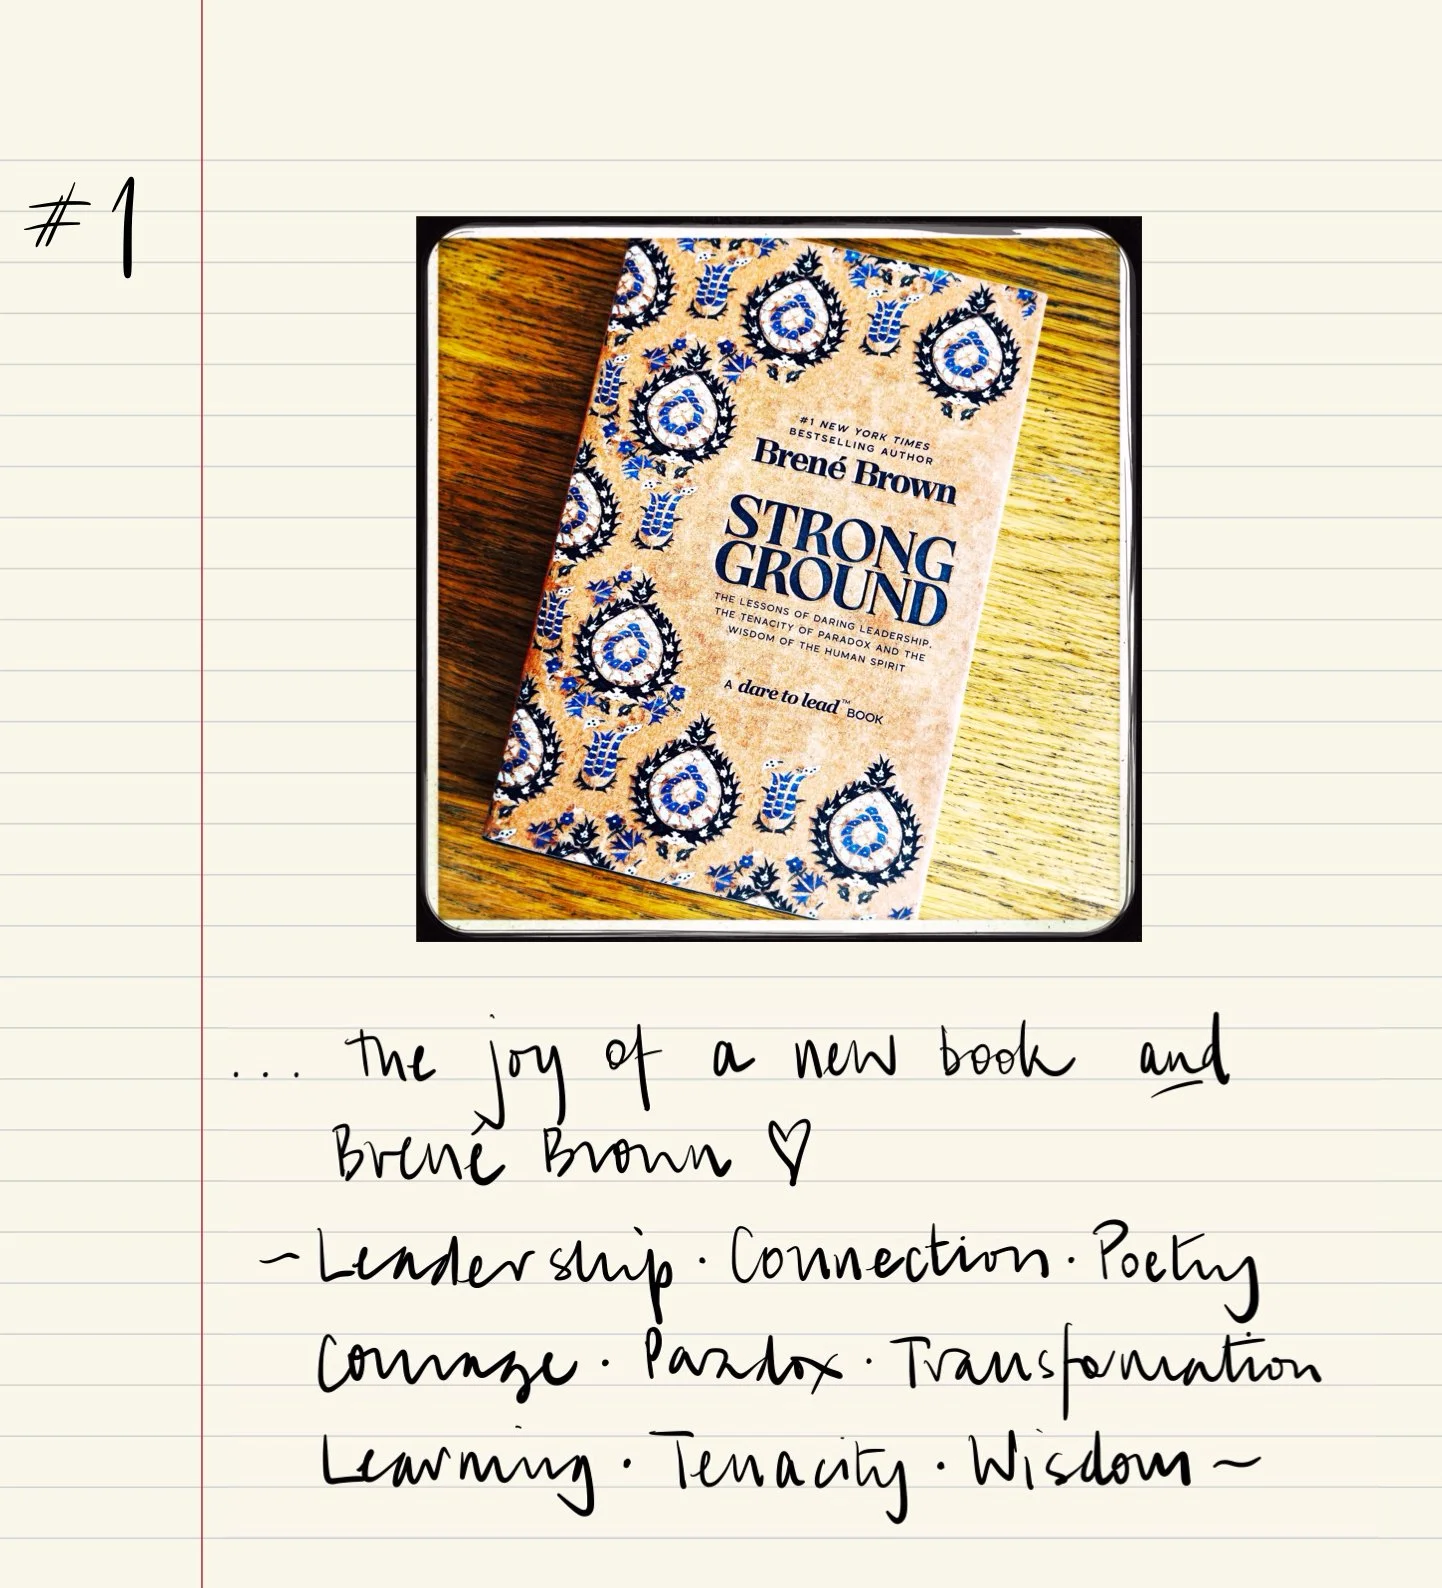 #1
#1 NEW YORK TIMES
BESTSELLING AUTHOR
Brené Brown
STRONG
GROUND
THE LESSONS OF DARING LEADERSHIP,
THE TENACITY OF PARADOX AND THE
WISDOM OF THE HUMAN SPIRIT
A dare to lead™ BOOK
... the joy of a new book and
Brenê Brown ♡
~ Leadership · Connection · Poetry
Courage · Paradox · Transformation
Learning · Tenacity · Wisdom ~